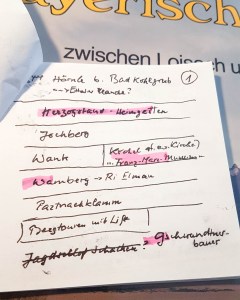 ayerisch
zwischen Loisach u
Hörnle b. Bad Kohlgrub ①
→
Herzogstand – Heimgarten
Jochberg
Wank
Kochel (t. ev. Kirche)
u. Franz-Marc-Museum
Wamberg → Ri Elmau
Partnachklamm
Bergtouren mit Lift
Jagdschloß Schachen ?
→ Gschwandtner-
bauer